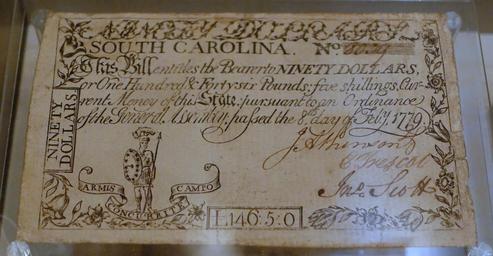 NINETY DOLLARS
SOUTH CAROLINA. No
This Bill entitles the Bearer to NINETY DOLLARS,
or One Hundred & Forty six Pounds; five shillings, Cur-
rent Money of this State, pursuant to an Ordinance
of the General Assembly, passed the 8th day of Feby. 1779.
NINETY
DOLLARS
J. Atkinson
Trescot
Jno. Scott
ARMIS
CONCURRERE
CAMPO
L146:5:0